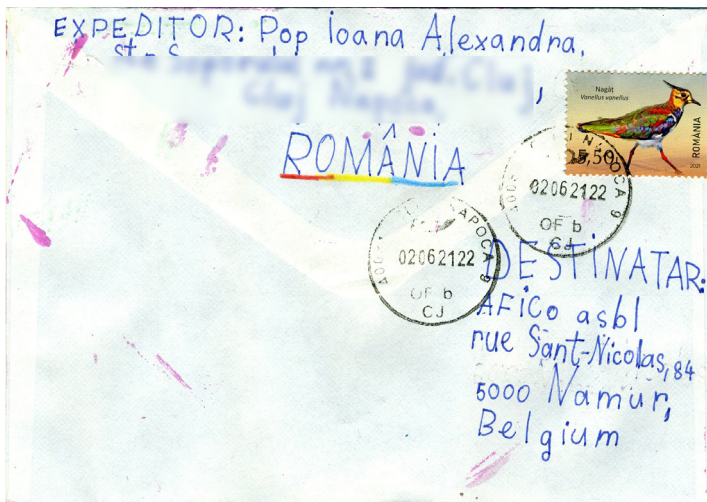 EXPEDITOR: Pop Ioana Alexandra,
jud. Cluj,
Cluj Napoca,
ROMÂNIA
Nagâț
Vanellus vanellus
ROMÂNIA
2021
5,50
NAPOCA 9
02062122
OF b
CJ
NAPOCA 9
02062122
OF b
CJ
DESTINATAR:
AFICo asbl
rue Sant-Nicolas, 84
5000 Namur,
Belgium